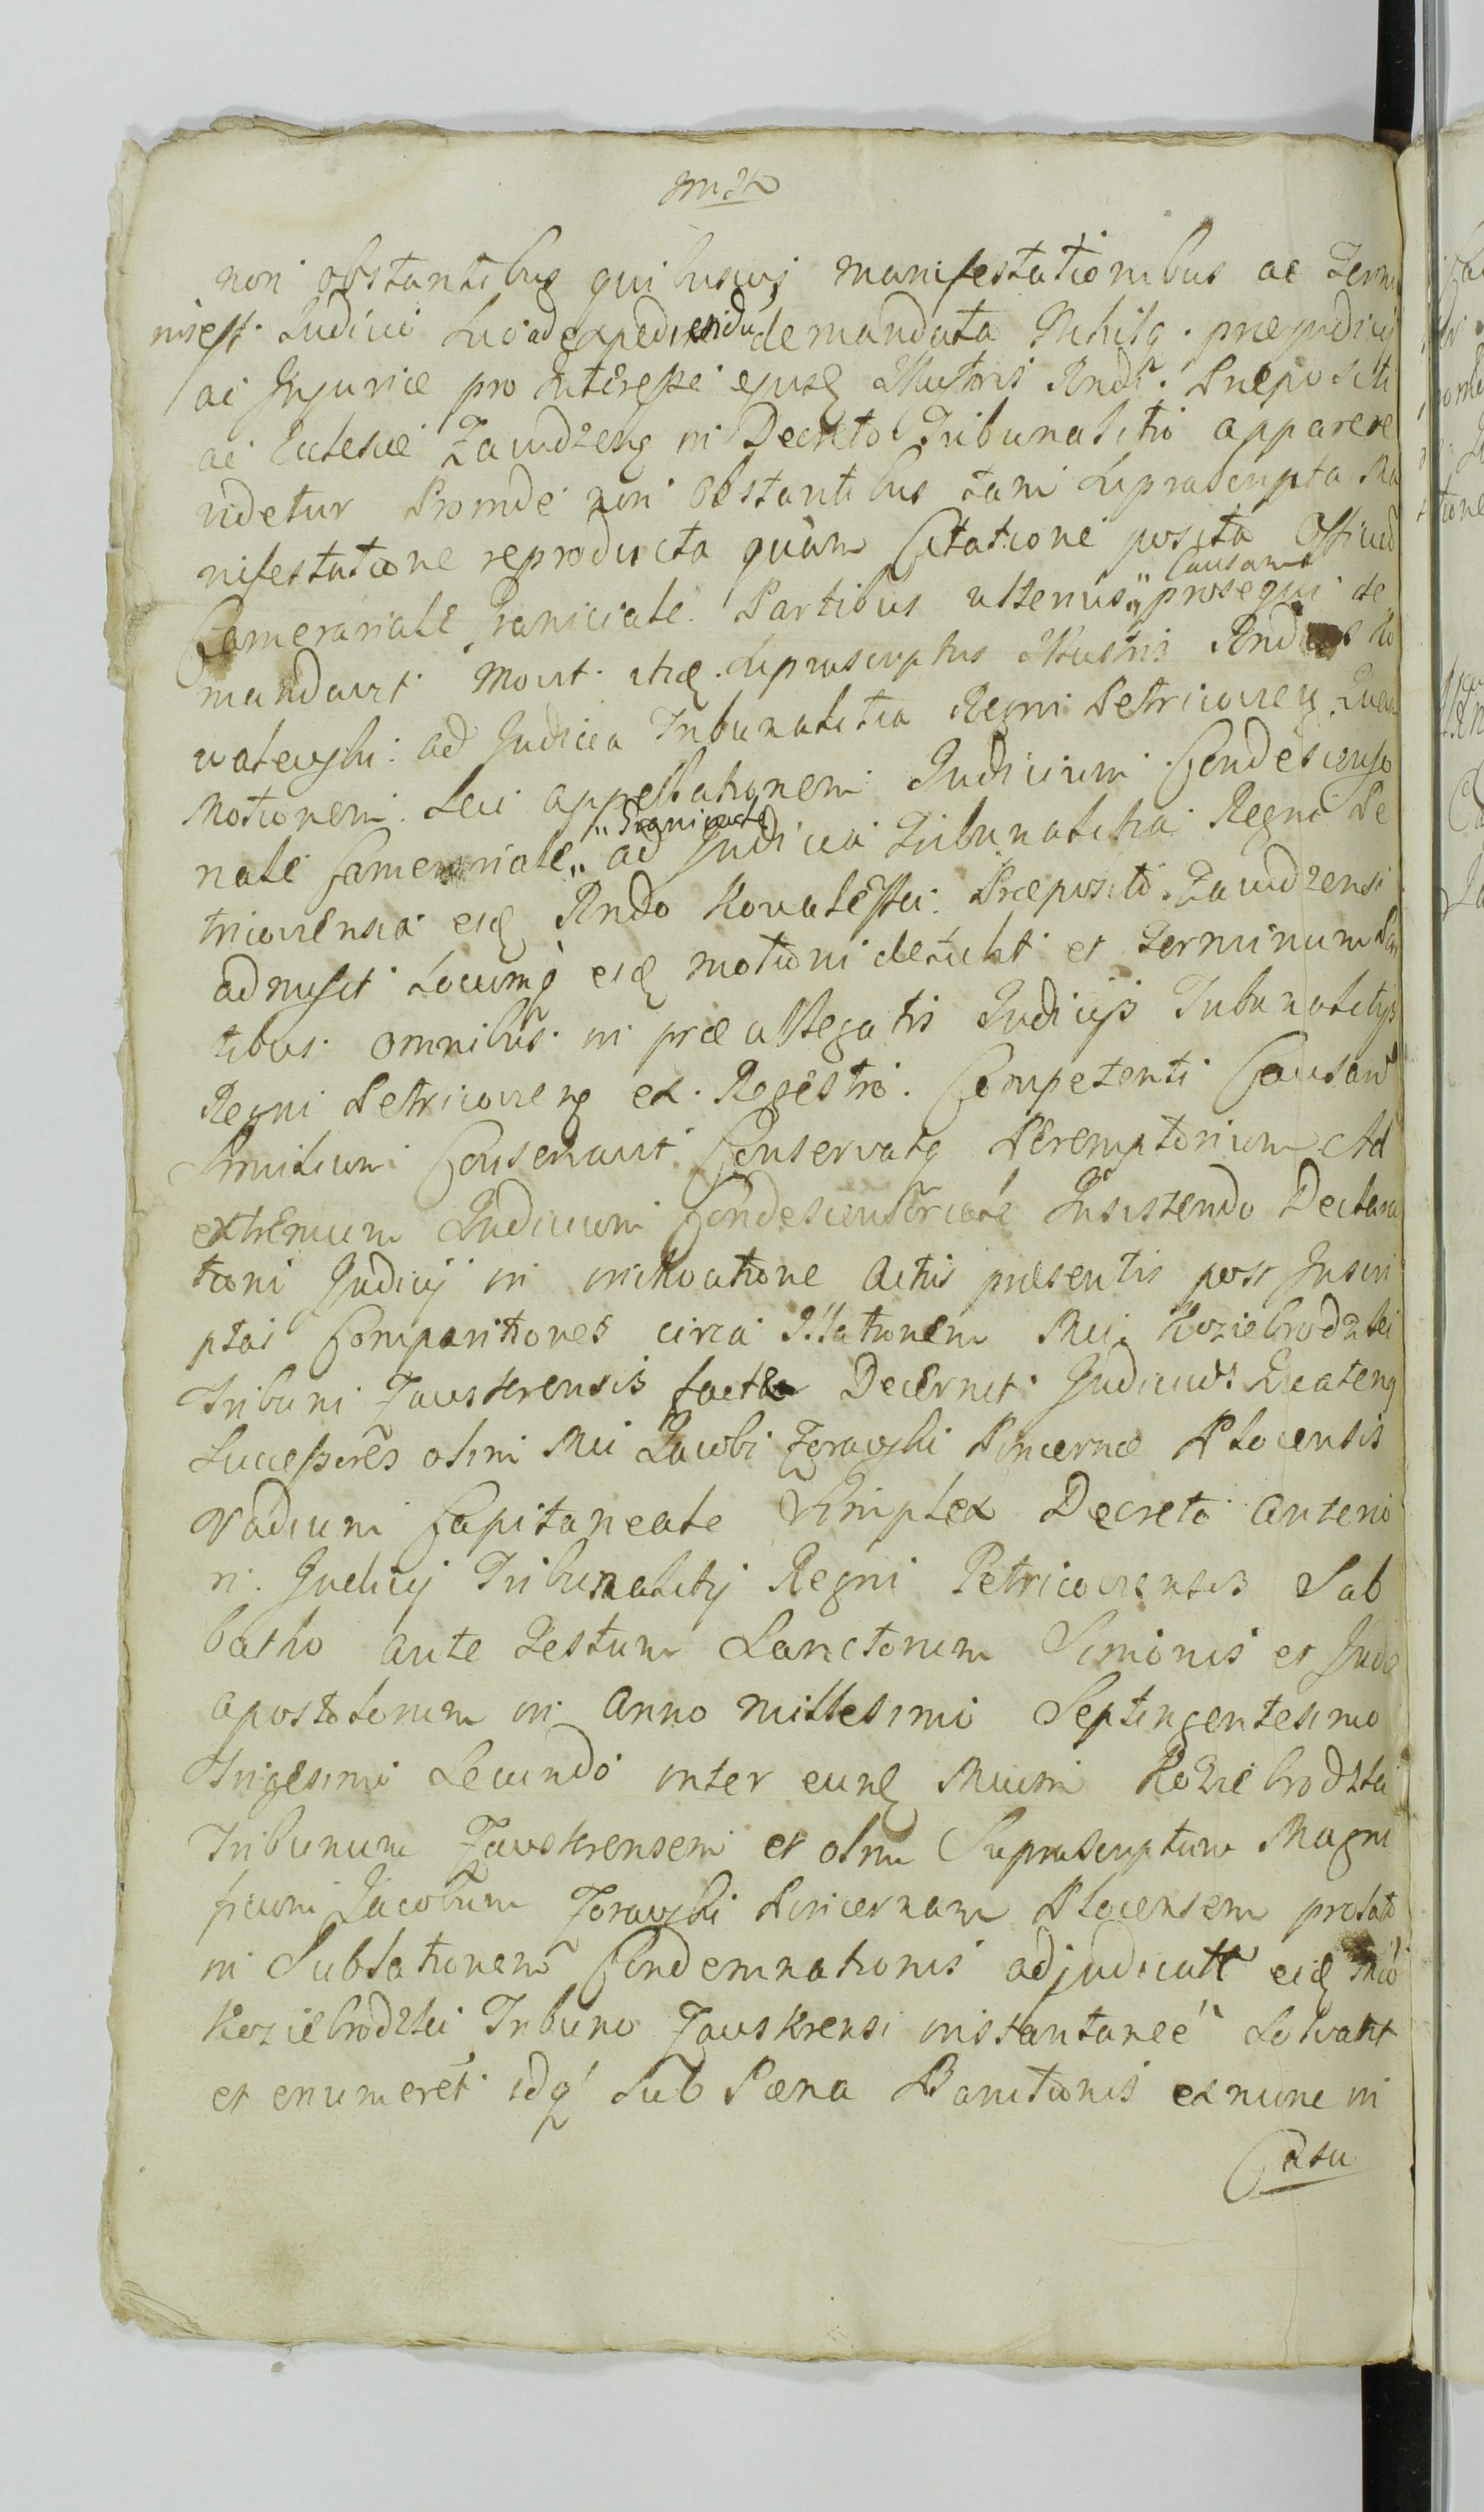 non obstantibus quibusvis manifestationibus ac Termi
nis eff. Judicii suo ad expediendū demandata Nihilq. præjudicij
ac Injuriæ pro interesse ejusq Illustris Rndi. Præpositi
ac Eclesiæ Zawidzenq in Decreto Tribunalitio apparere
videtur Proinde non obstantibus tam supra scripta Ma
nifestatione reproducta quàm Citatione posita Officiū
Camerariale Graniciale Partibus ulterius „ Causam prosequi de
mandavit Movit itaq. suprascriptus Illustris Rndus Ko
walewski ad Judicia Tribunalitia Regni Petricovien Quam
Motionem seu appellationem Judicium Condescenso
riale Camerariale „ Graniciale ad Judicia Tribunalitia Regni Pe
tricoviensia eidq Rndo Kowalesski Præposito Zawidzensi
admisit Locumq eidq motioni detulit et Terminum Par
tibus omnibus in præallegatis Judicijs Tribunalitijs
Regni Petricovienq ex Regestro Competenti Causarū
Similium Conservavit Conservatq Peremptorium Ad
extremum Judicium Condescensoriale Insistendo Declara
tioni Judicij in inchoatione Actus præsentis post Inscri
ptas Comparitiones circa Illationem Mci Koziebrodzki
Tribuni Zauskrensis factæ Decernit Judicium Quatenq
Successores olim Mci Jacobi Zorawski Pincernæ Plocensis
Vadium Capitaneale Simplex Decreto anterio
ri Judicij Tribunalitij Regni Petricoviensis Sab
batho ante Festum Sanctorum Simonis et Judæ
apostolorum in Anno millesimo Septingentesimo
Trigesimo Secundo inter eunq Mcum Koziebrodzki
Tribunum Zauskrensem et olim Suprascriptum Magni
ficum Jacobum Zorawski Pincernam Plocensem prolato
in Sublationem Condemnationis adjudicatū eidq Mco
Koziebrodzki Tribuno Zauskrensi instantaneè solvant
et enumeret idq Sub Pæna Banitionis ex nunc in
Casu